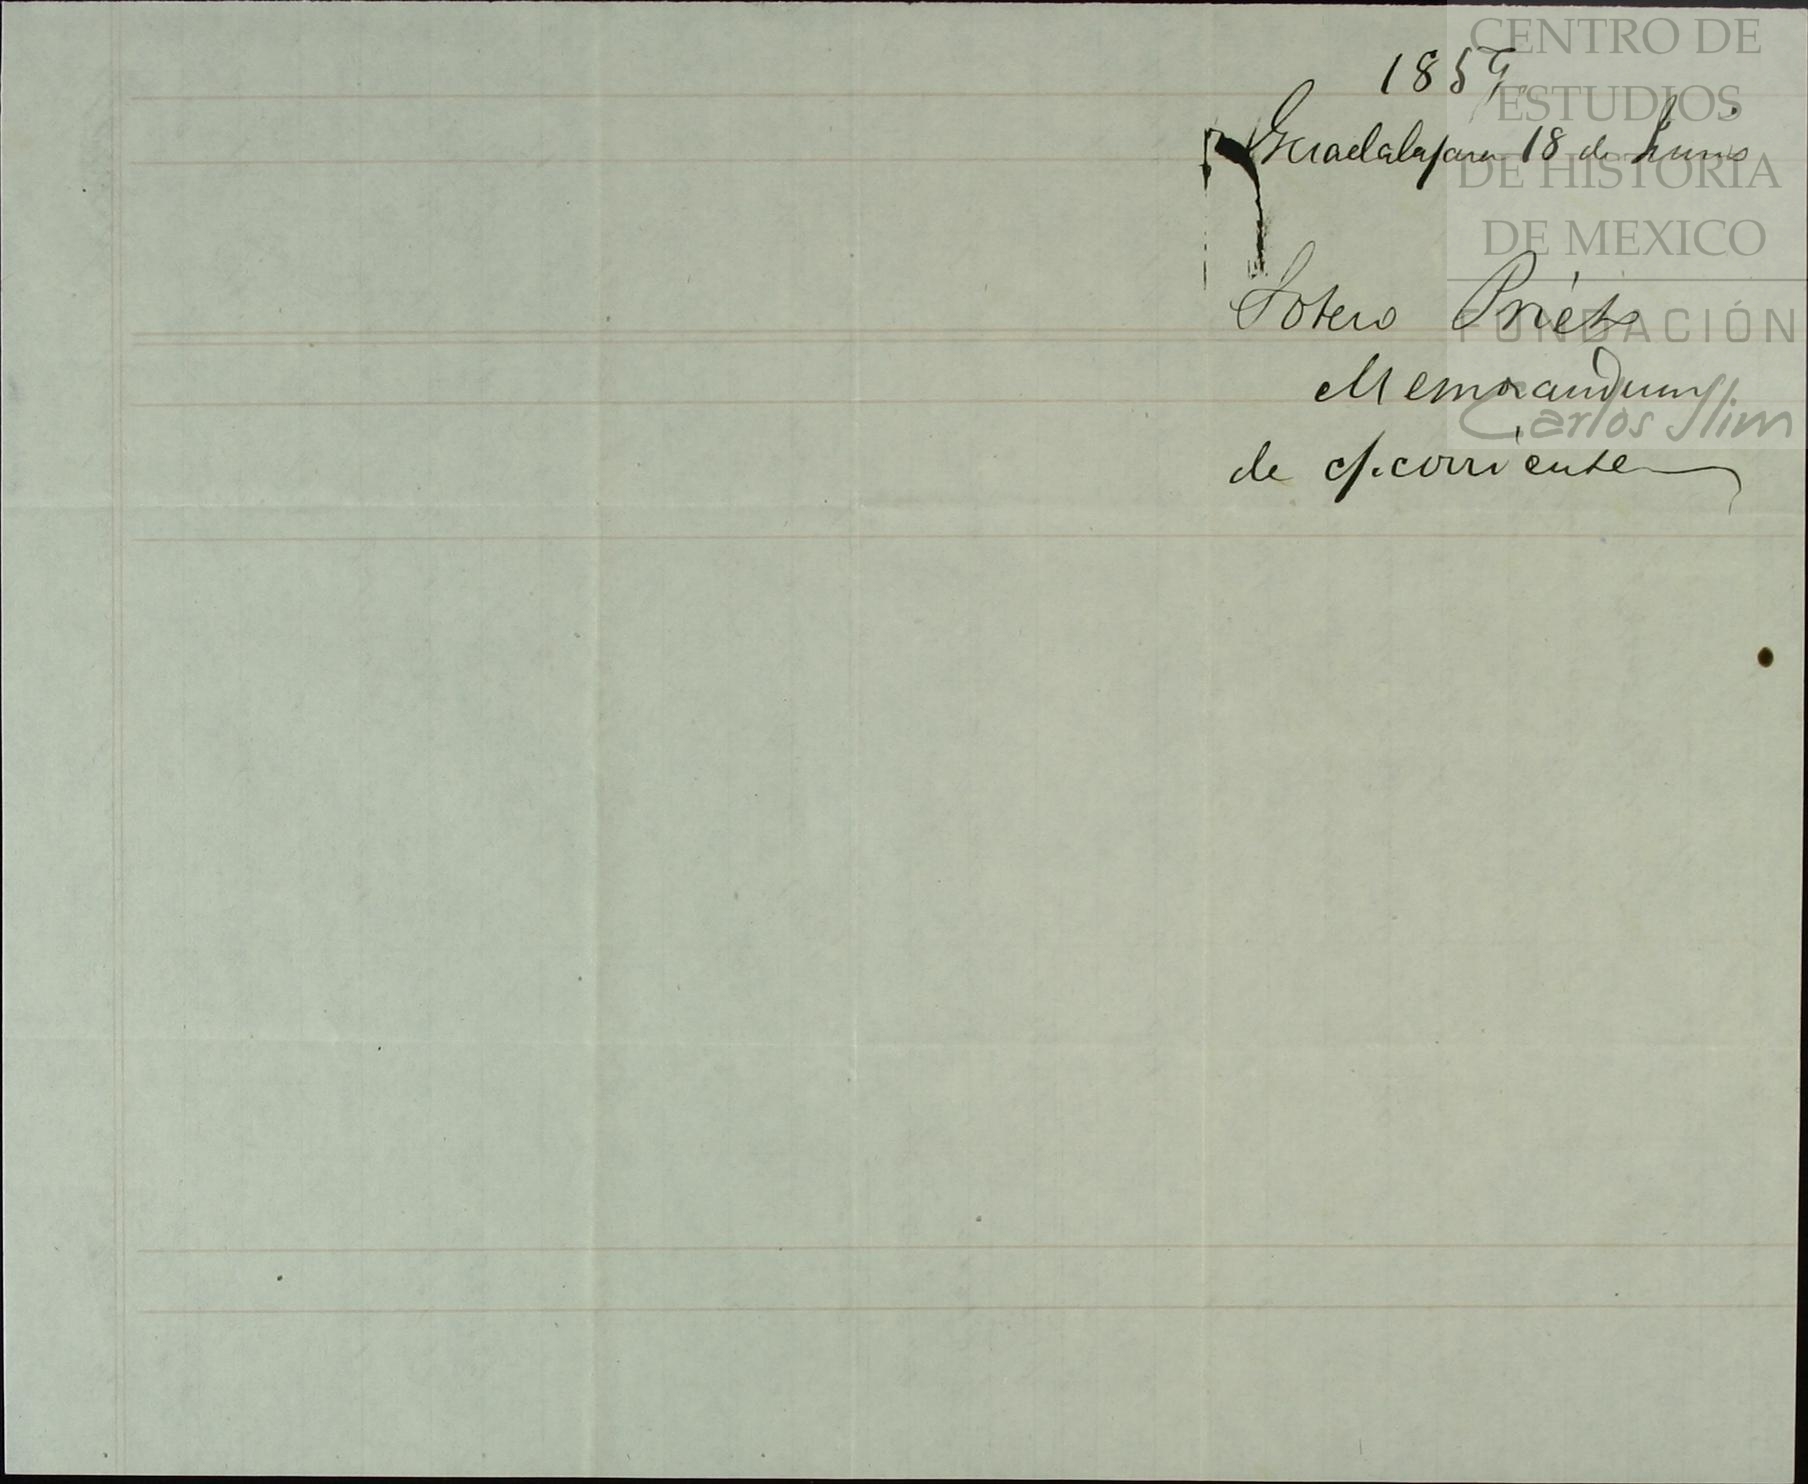 1859
Guadalajara 18 de Junio
Sotero Prieto
Memorandum
de c/. corriente
CENTRO DE
ESTUDIOS
DE HISTORIA
DE MEXICO
FUNDACIÓN
Carlos Slim